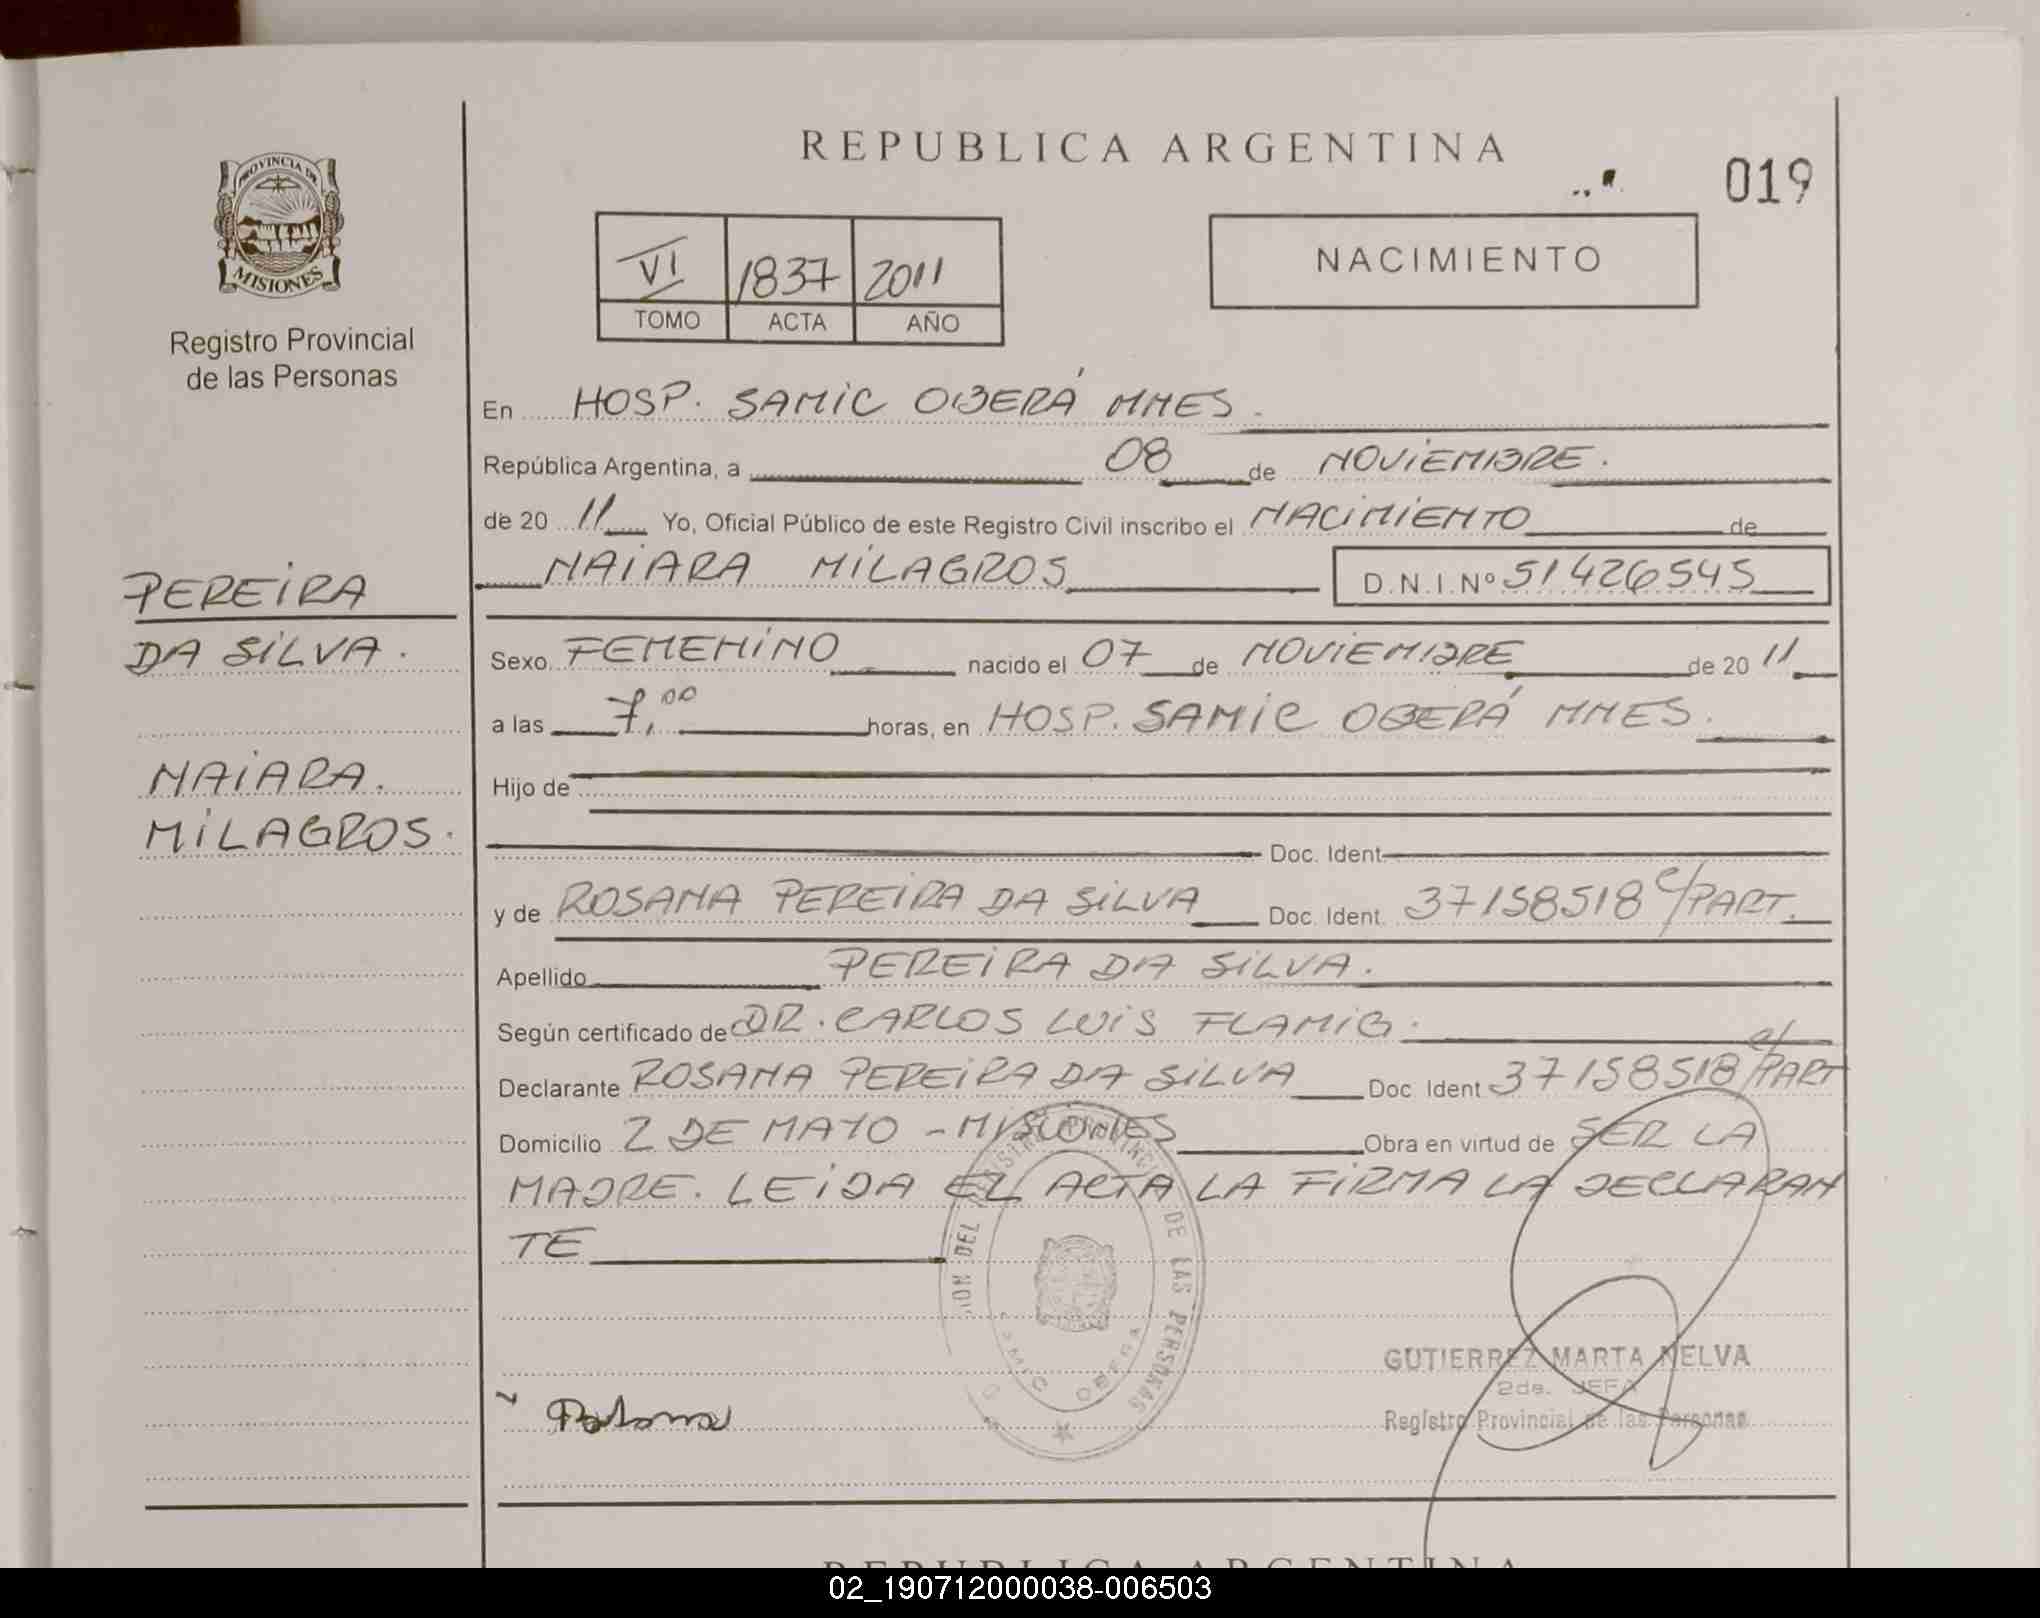 REPUBLICA ARGENTINA
019
PROVINCIA DE
MISIONES
Registro Provincial
de las Personas
VI 1837 2011
TOMO ACTA AÑO
NACIMIENTO
En HOSP. SAMIC OBERÁ MNES.
República Argentina, a 08 de NOVIEMBRE.
de 20 11 Yo, Oficial Público de este Registro Civil inscribo el NACIMIENTO de
NAIARA MILAGROS D.N.I.Nº 51426545
PEREIRA
DA SILVA.
NAIARA.
MILAGROS.
Sexo FEMENINO nacido el 07 de NOVIEMBRE de 20 11
a las 7,00 horas, en HOSP. SAMIC OBERÁ MNES.
Hijo de
Doc. Ident
y de ROSANA PEREIRA DA SILVA Doc. Ident. 37158518 e/PART.
Apellido PEREIRA DA SILVA.
Según certificado de DR. CARLOS LUIS FLAMIG.
Declarante ROSANA PEREIRA DA SILVA Doc. Ident 37158518 e/PART
Domicilio 2 DE MAYO - MISIONES Obra en virtud de SER LA
MADRE. LEIDA EL ACTA LA FIRMA LA DECLARAN
TE
PROVINCIAL DE LAS PERSONAS
SAMIC OBERA
GUTIERREZ MARTA NELVA
2da. JEFA
Registro Provincial de las Personas
REPUBLICA ARGENTINA
02_190712000038-006503